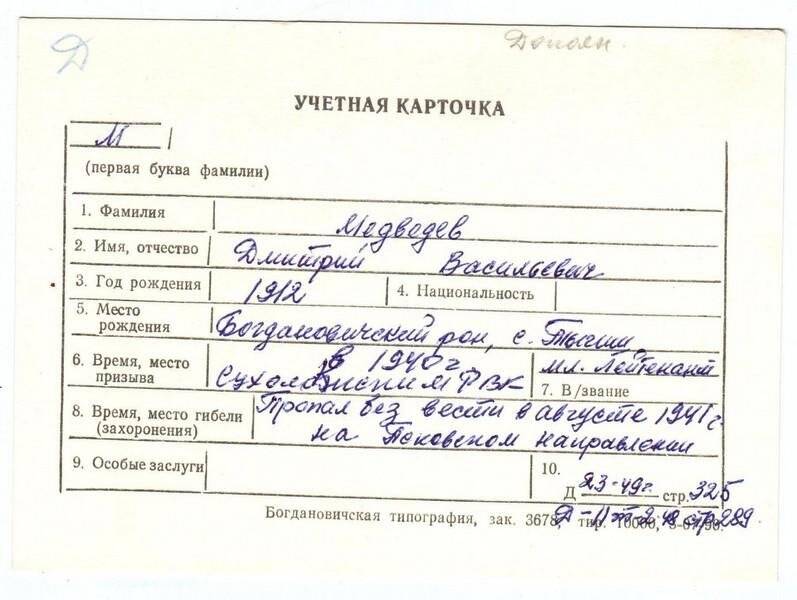 Д
Дополн.
УЧЕТНАЯ КАРТОЧКА
М
(первая буква фамилии)
1. Фамилия Медведев
2. Имя, отчество Дмитрий Васильевич
3. Год рождения 1912 4. Национальность
5. Место рождения Богдановичский рон, с. Тыгиш
6. Время, место призыва в 1940 г. Сухоложским РВК
мл. Лейтенант
7. В/звание
8. Время, место гибели (захоронения) Пропал без вести в августе 1941 г.
на Псковском направлении
9. Особые заслуги
10.
Д 23-49г. стр. 325
Д-11т-2 стр 289.
Богдановичская типография, зак. 3678, тир. 10000, 90.